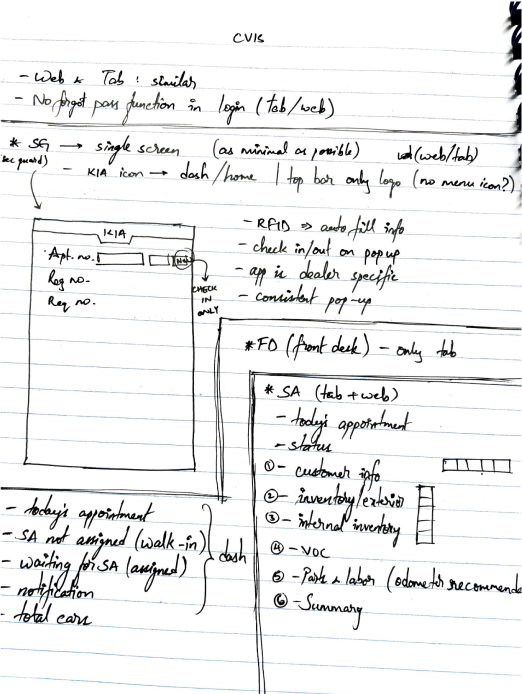 CVIS
- Web & Tab : similar
- No forgot pass function in login (tab/web)
* SG → single screen (as minimal as possible) (web/tab)
sec guard)
- KIA icon → dash/home | top bar only logo (no menu icon?)
KIA
Apt. no.
Reg no.
Req no.
CHECK
IN
ONLY
- RFID ⇒ auto fill info
- check in/out on popup
- app is dealer specific
- consistent pop-up
* FD (front desk) - only tab
* SA (tab + web)
- today's appointment
- status
① - customer info
② - inventory/exterior
③ - internal inventory
④ - VOC
⑤ - Parts & labor (odometer recommende
⑥ - Summary
- today's appointment
- SA not assigned (walk-in)
- waiting for SA (assigned)
- notification
- total cars
dash